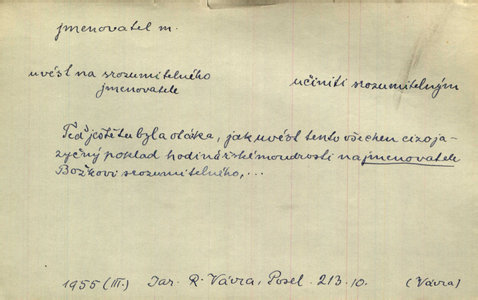 jmenovatel m.
uvést na srozumitelného
jmenovatele
učiniti srozumitelným
Teď ještě tu byla otázka, jak uvést tento všechen cizoja-
zyčný poklad hodinářské moudrosti na jmenovatele
Božkovi srozumitelného,...
1955 (III.) Jar. R. Vávra, Posel. 213.10. (Vávra)